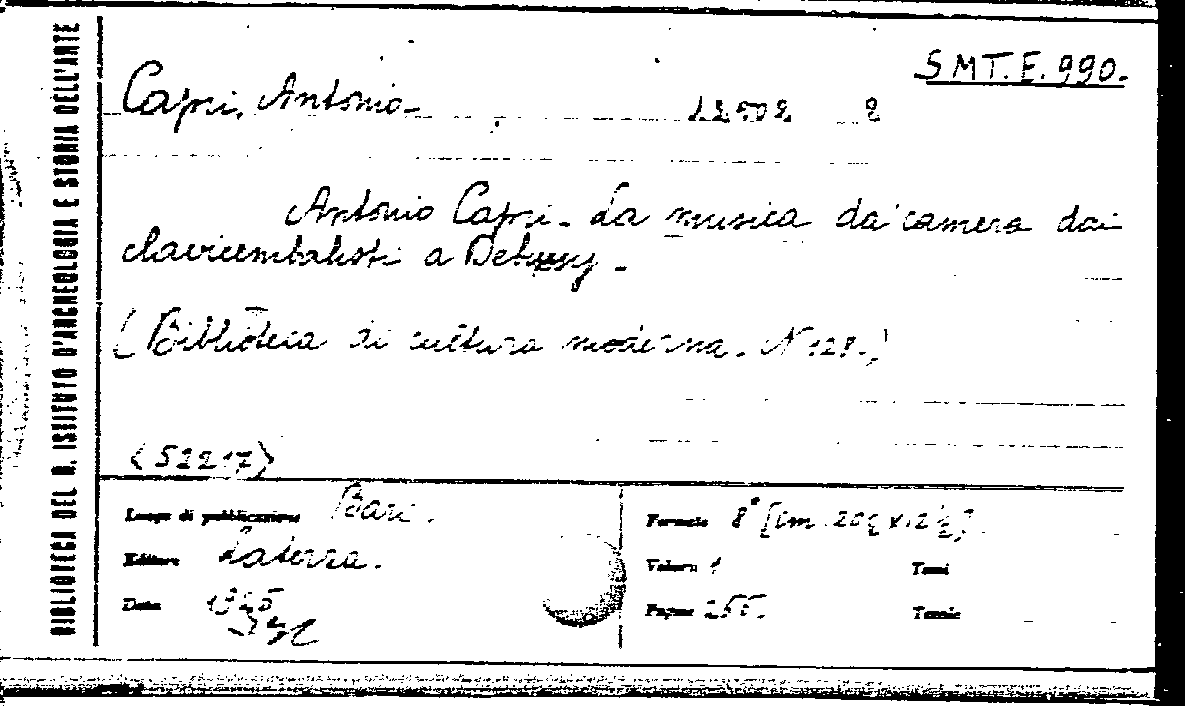 BIBLIOTECA DEL R. ISTITUTO D'ARCHEOLOGIA E STORIA DELL'ARTE
S.M.T. E. 990.
Capri, Antonio. 12502 2
Antonio Capri. La musica da camera dai
clavicembalisti a Debussy.
(Biblioteca di cultura moderna. N 128.)
(52217)
Luogo di pubblicazione Bari.
Editore Laterza.
Data 1925
Formato 8° [cm 20½ x 12½].
Volumi 1 Tomi
Pagine 255. Tavole